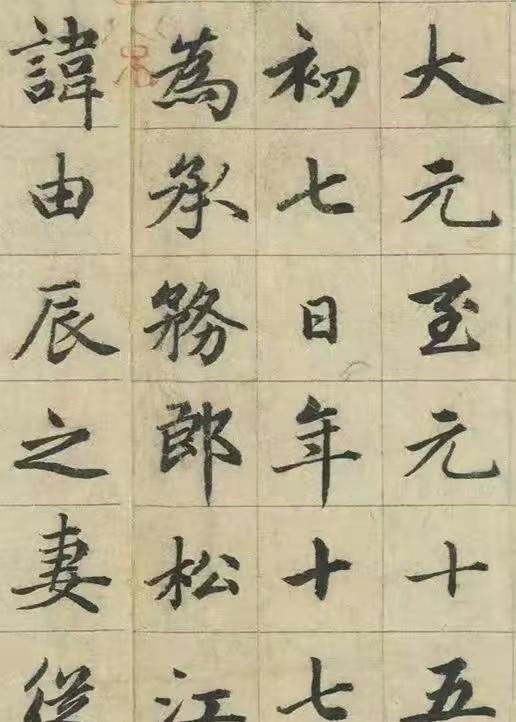 大元至元十五
初七日年十七
為承務郎松江
諱由辰之妻從